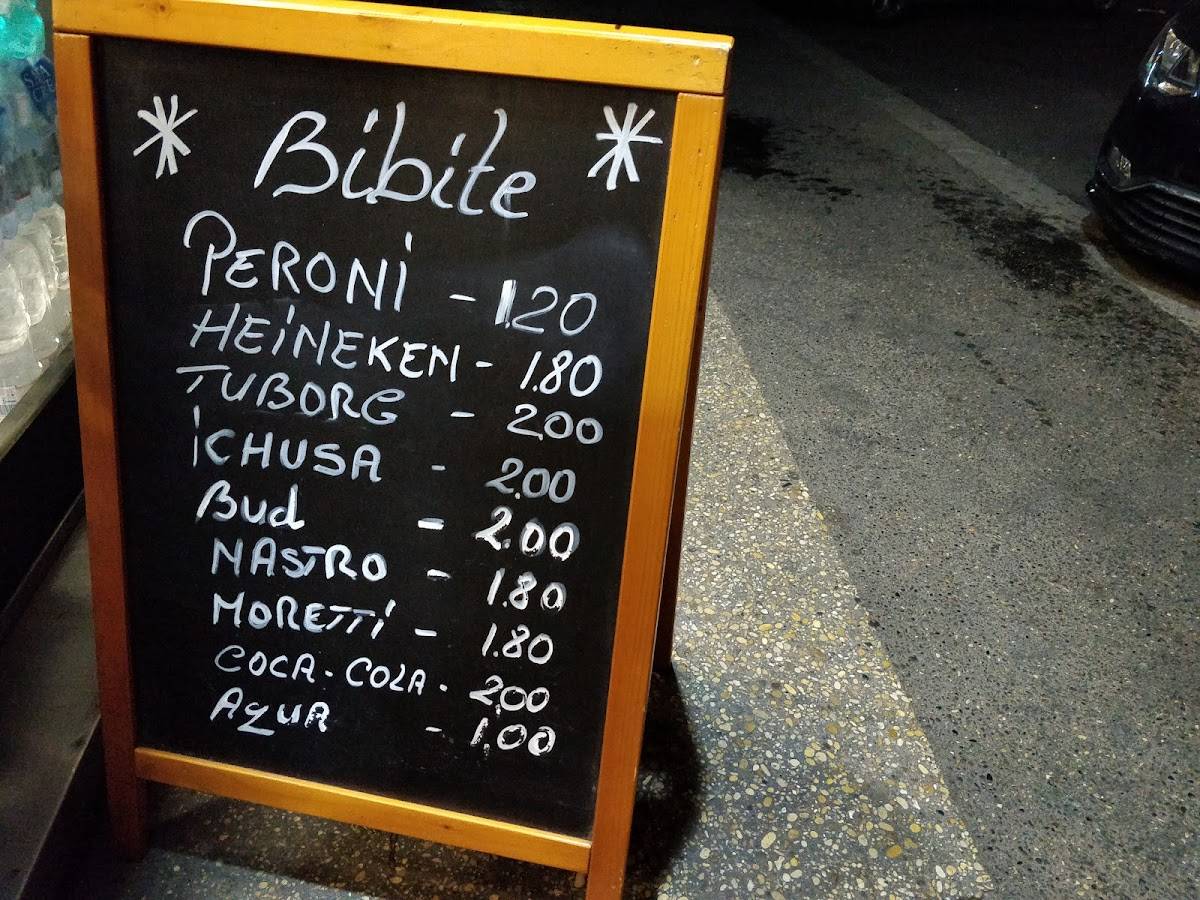 Bibite
PERONI - 1.20
HEINEKEN - 1.80
TUBORG - 2,00
ICHUSA - 2.00
Bud - 2.00
NASTRO - 1.80
MORETTI - 1.80
COCA-COLA - 2,00
AQUA - 1,00